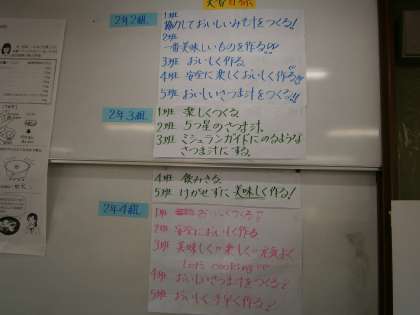 2年2組
1班
協力しておいしいみそ汁をつくる!!
2班
一番美味しいものを作る!!
3班 おいしく作る。
4班 安全に楽しくおいしく作る!!
5班 おいしいさつま汁をつくる!!
2年3組
1班 楽しくつくる。
2班 5つ星のさつま汁。
3班 ミシュランガイドにのるような
さつま汁にする。
4班 飲みきる。
5班 けがせずに美味しく作る!
2年4組
1班 おいしくつくる
2班 安全においしく作る
3班 美味しく 楽しく 元気よく
Let's cooking
4班 おいしいさつま汁をつくる
5班 おいしく手早く作る